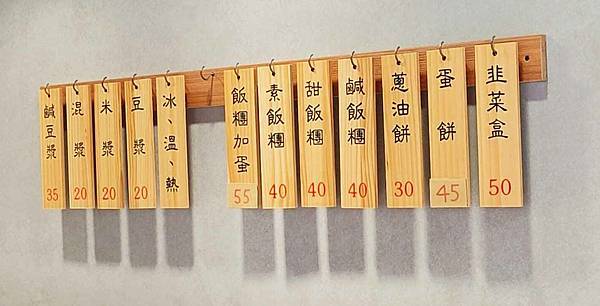 韭菜盒 50
蛋餅 45
蔥油餅 30
鹹飯糰 40
甜飯糰 40
素飯糰 40
飯糰加蛋 55
冰、溫、熱
豆漿 20
米漿 20
混漿 20
鹹豆漿 35